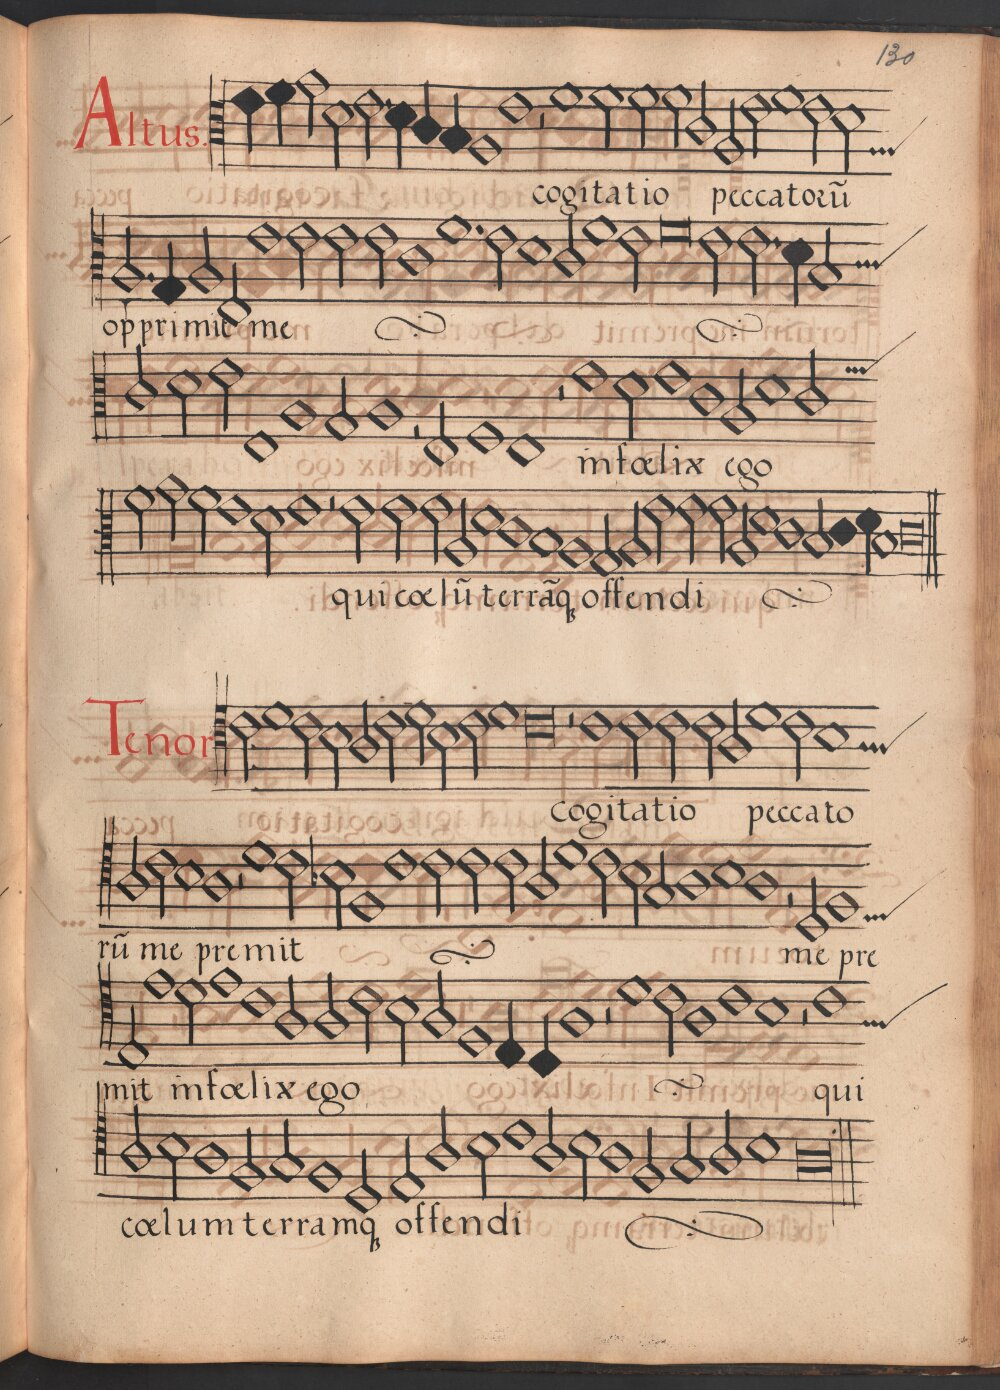 130
Altus.
cogitatio peccatorū
opprimit me
infœlix ego
qui cœlū terrāq offendi
Tenor
cogitatio peccato
rū me premit
me pre
mit infœlix ego
qui
cœlum terramq offendi